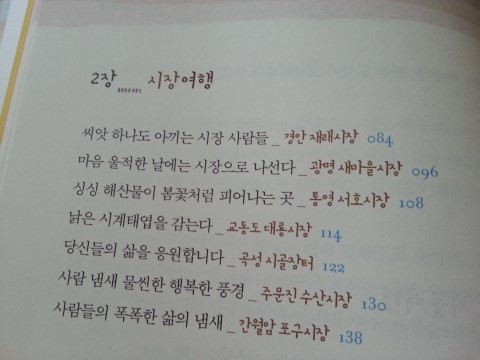 2장 시장여행
씨앗 하나도 아끼는 시장 사람들 _ 경안 재래시장 084
마음 울적한 날에는 시장으로 나선다 _ 광명 새마을시장 096
싱싱 해산물이 봄꽃처럼 피어나는 곳 _ 통영 서호시장 108
낡은 시계태엽을 감는다 _ 교동도 대룡시장 114
당신들의 삶을 응원합니다 _ 곡성 시골장터 122
사람 냄새 물씬한 행복한 풍경 _ 주문진 수산시장 130
사람들의 폭폭한 삶의 냄새 _ 간월암 포구시장 138